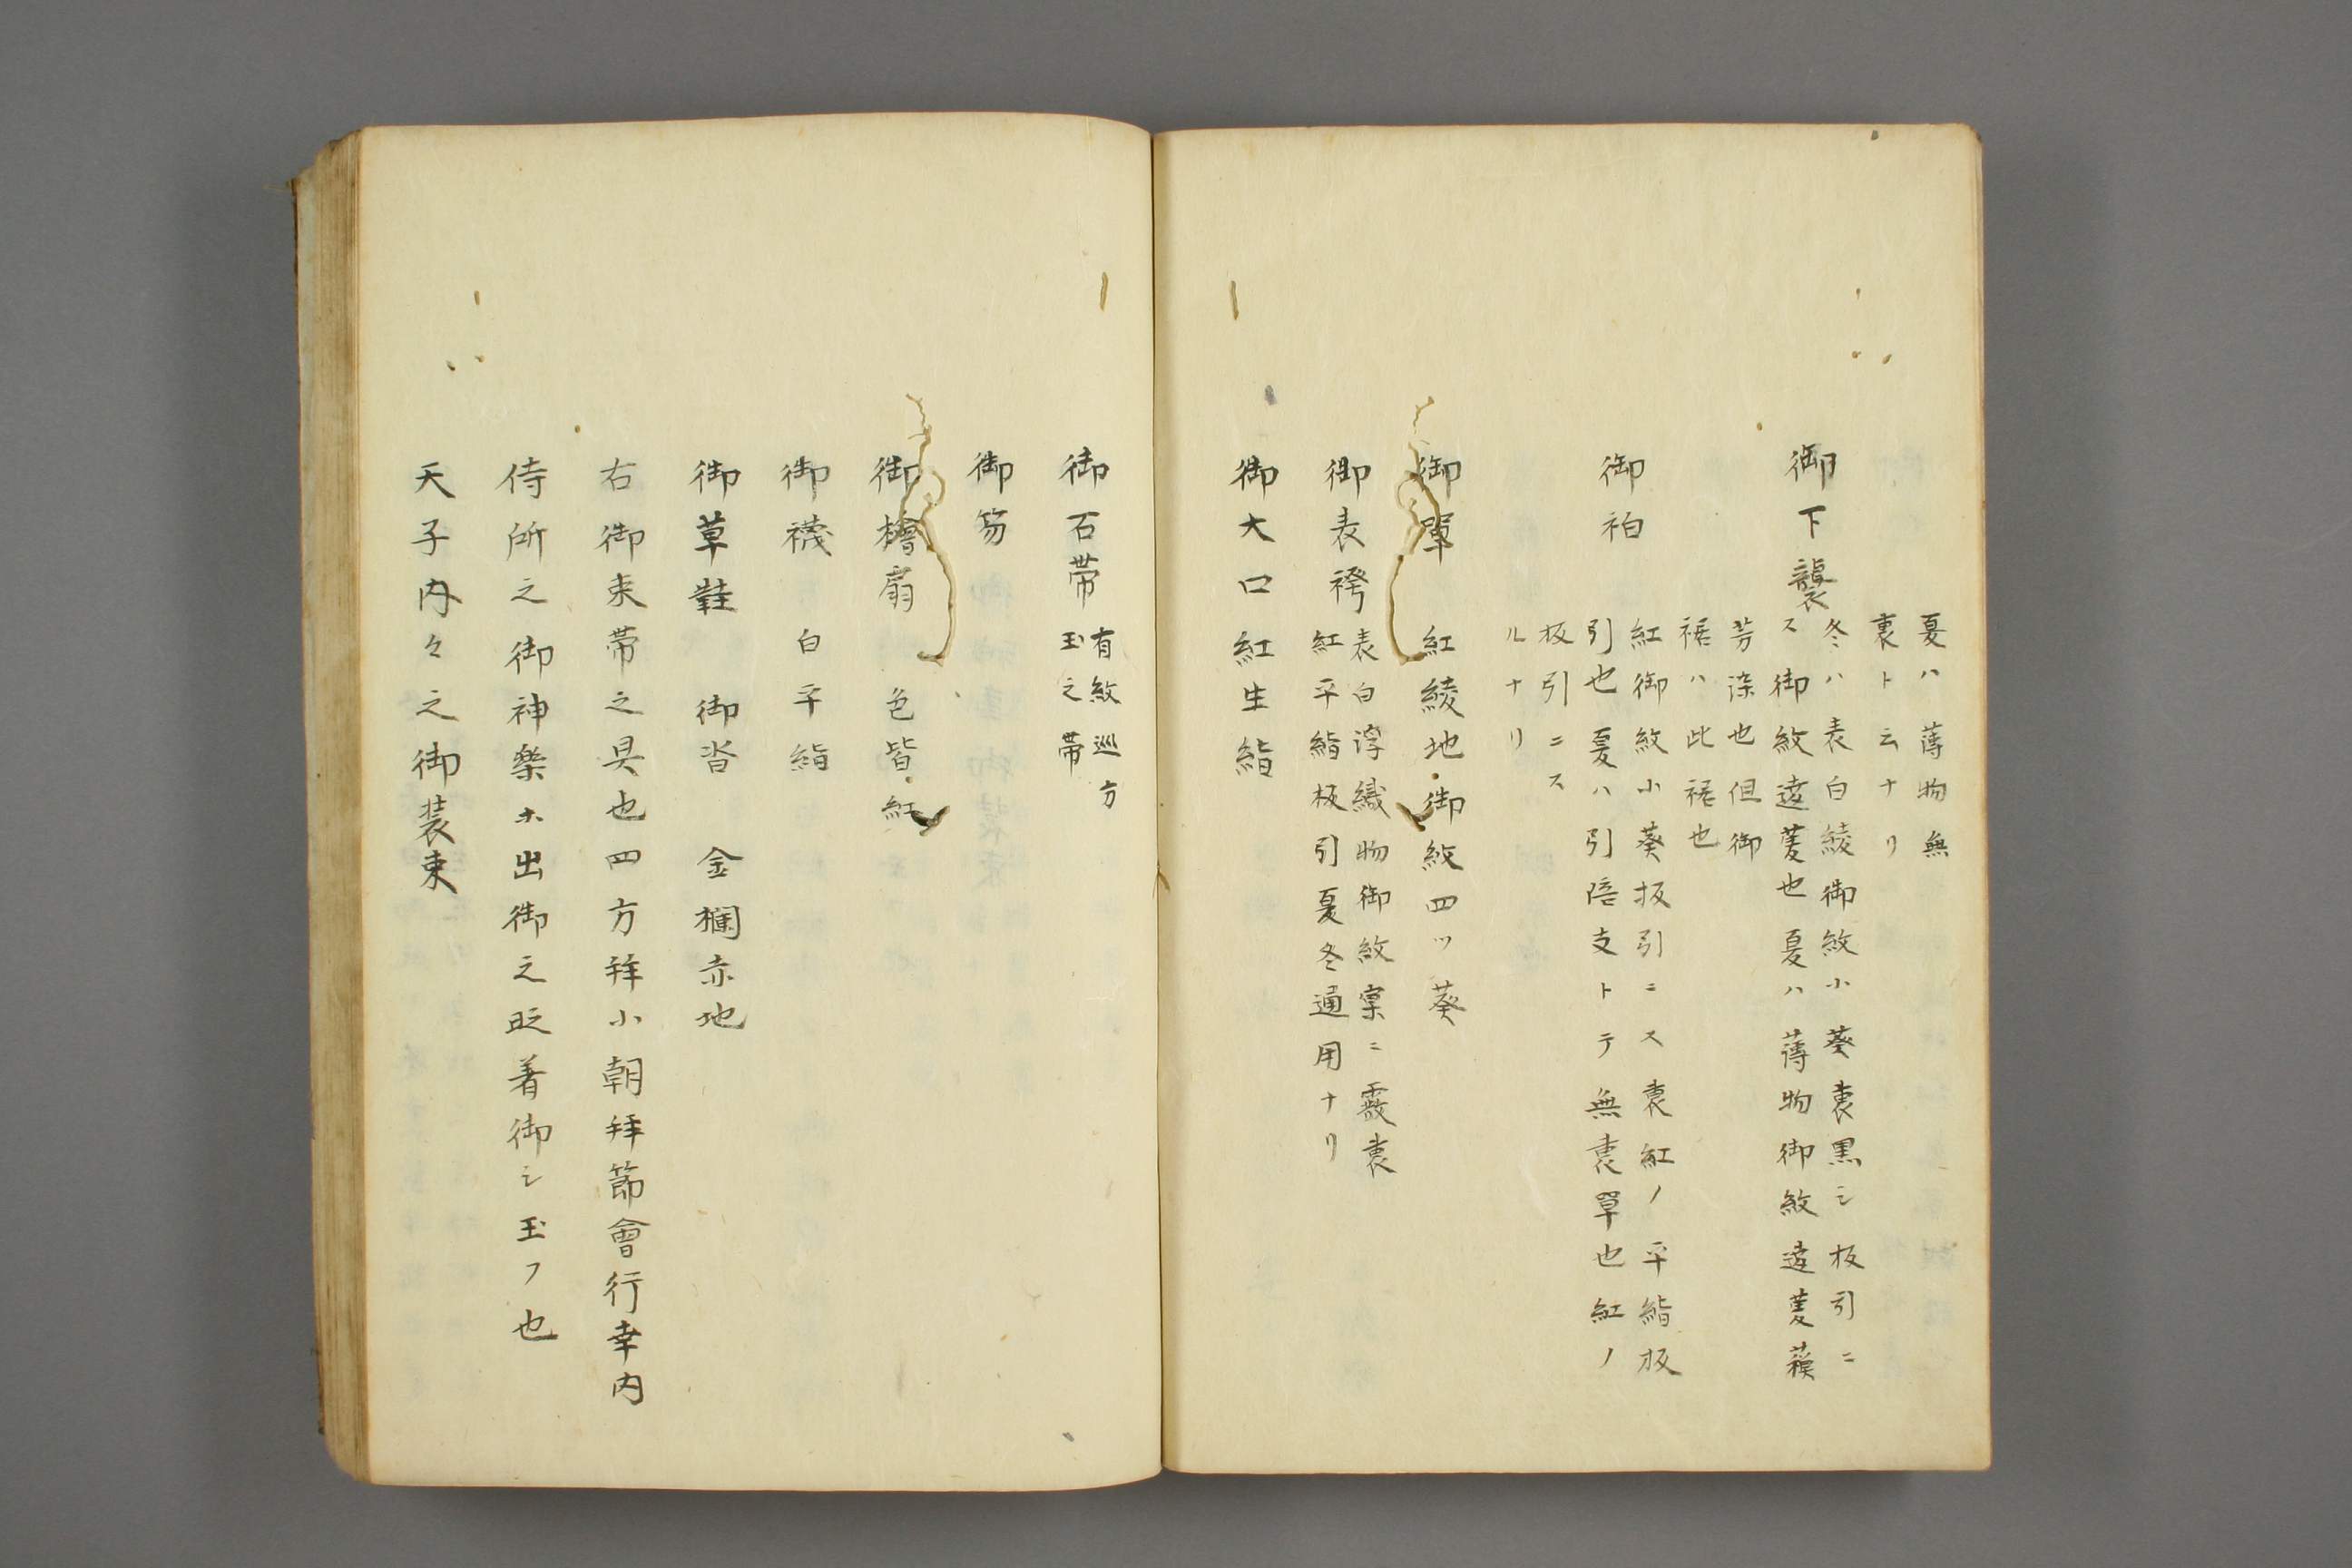 夏ハ薄物無
裏ト云ナリ
御下襲
冬ハ表白綾御紋小葵裏黒シ板引ニ
ス御紋遠菱也夏ハ薄物御紋遠菱蘓
芳染也但御
裾ハ此裾也
御衵
紅御紋小葵板引ニス裏紅ノ平絹板
引也夏ハ引陪支トテ無裏単也紅ノ
板引ニス
ルナリ
御單 紅綾地御紋四ツ葵
御表袴
表白浮織物御紋窠ニ霰裏
紅平絹板引夏冬通用ナリ
御大口紅生絹
御石帯
有紋巡方
玉之帯
御笏
御檜扇 色皆紅
御襪 白平絹
御草鞋 御沓 金襴赤地
右御束帯之具也四方拜小朝拜節會行幸内
侍所之御神樂ホ出御之砌着御シ玉フ也
天子内々之御装束